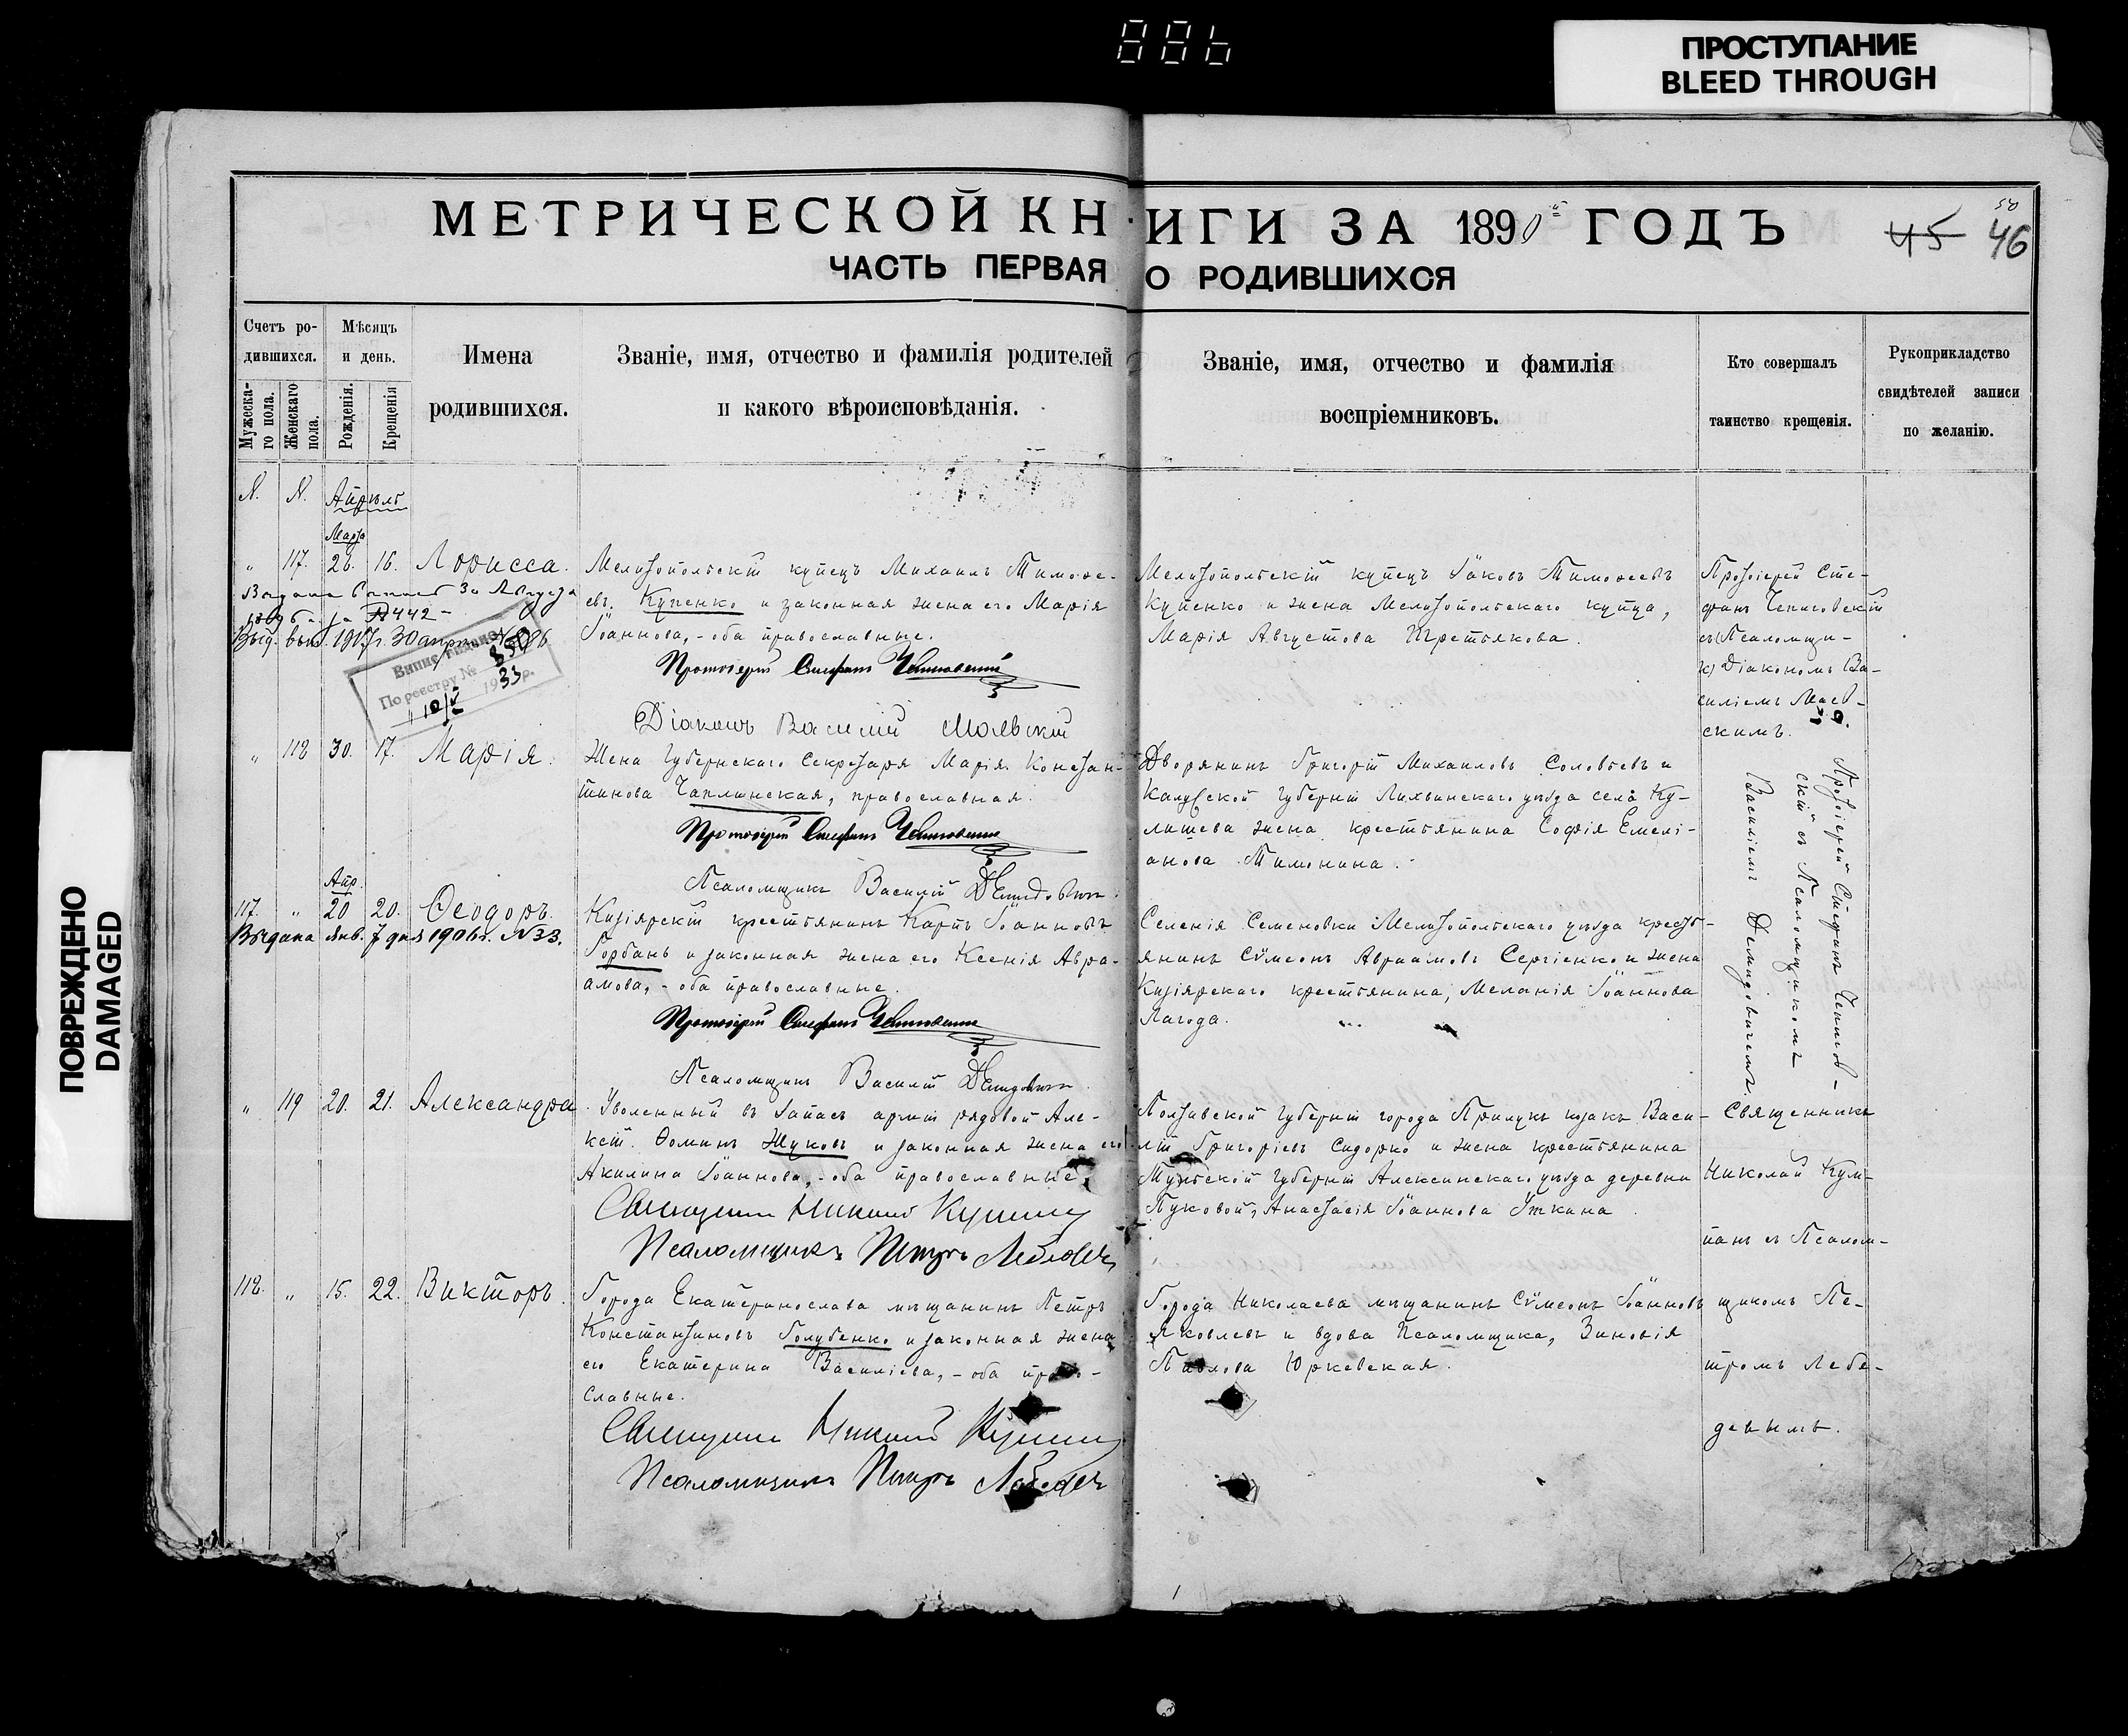 886
ПРОСТУПАНИЕ
BLEED THROUGH
ПОВРЕЖДЕНО
DAMAGED
МЕТРИЧЕСКОЙ КНИГИ ЗА 1890й ГОДЪ
45 46
50
ЧАСТЬ ПЕРВАЯ О РОДИВШИХСЯ
Счетъ родившихся.
Мужескаго пола.
Женскаго пола.
Мѣсяцъ и день.
Рожденія.
Крещенія
Имена родившихся.
Званіе, имя, отчество и фамилія родителей
и какого вѣроисповѣданія.
Званіе, имя, отчество и фамилія
воспріемниковъ.
Кто совершалъ
таинство крещенія.
Рукоприкладство
свидѣтелей записи
по желанію.
N. N. Апрѣль
Март
" 117. 26. 16. Лорисса.
Мелитопольскій купецъ Михаилъ Тимоѳе-
евъ Купенко и законная жена его Марія
Іоаннова, - оба православные.
Протоіерей Стефанъ
Діаконъ Василій
Мелитопольскій купецъ Іаковъ Тимоѳеевъ
Купенко и жена Мелитопольскаго купца,
Марія Августова Третьякова.
Протоіерей Сте-
фанъ
съ Псаломщи-
к. Діакономъ Ва-
силіемъ
скимъ.
Выд. вып. 1917 г. 30 апр.
По реестру № 850
10/V 1933 р.
" 118 30. 17. Марія.
Жена Губернскаго Секретаря Марія Констан-
тинова Чаплинская, православная.
Протоіерей Стефанъ
Псаломщикъ Василій Демидовичъ
Дворянинъ Григорій Михаиловъ Соловьевъ и
Калужской губерніи Лихвинскаго уѣзда села Ку-
лишева жена крестьянина Софія Емелі-
анова Тимонина.
Протоіерей Стефанъ
скій съ Псаломщикомъ
Василіемъ Демидовичемъ.
Апр.
117. " 20 20. Ѳеодоръ.
Выдана Янв. 7 дня 1906 г. N 33.
Кизіярскій крестьянинъ Карпъ Іоанновъ
Горбань и законная жена его Ксенія Авра-
амова, - оба православные.
Протоіерей Стефанъ
Псаломщикъ Василій Демидовичъ
Селенія Семеновки Мелитопольскаго уѣзда кресть-
янинъ Сѵмеонъ Авраамовъ Сергіенко и жена
Кизіярскаго крестьянина, Меланія Іоаннова
Лагода.
" 119 20. 21. Александра
Уволенный въ запасъ арміи рядовой Але-
ксій Ѳоминъ Жуковъ и законная жена его
Акилина Іоаннова, - оба православные.
Священникъ Николай
Псаломщикъ Петръ Лебедевъ
Полтавской губерніи города Прилукъ козакъ Васи-
лій Григоріевъ Сидорко и жена крестьянина
Тульской губерніи Алексинскаго уѣзда деревни
Пуковой, Анастасія Іоаннова Уткина.
Священникъ
Николай Кули-
панъ съ Псалом-
щикомъ Пе-
тромъ Лебе-
девымъ.
118. " 15. 22. Викторъ.
Города Екатеринослава мѣщанинъ Петръ
Константиновъ Голубенко и законная жена
его Екатерина Василіева, - оба право-
славные.
Священникъ Николай
Псаломщикъ Петръ Лебедевъ
Города Николаева мѣщанинъ Сѵмеонъ Іоанновъ
Яковлевъ и вдова Псаломщика, Зиновія
Павлова Юркевская.